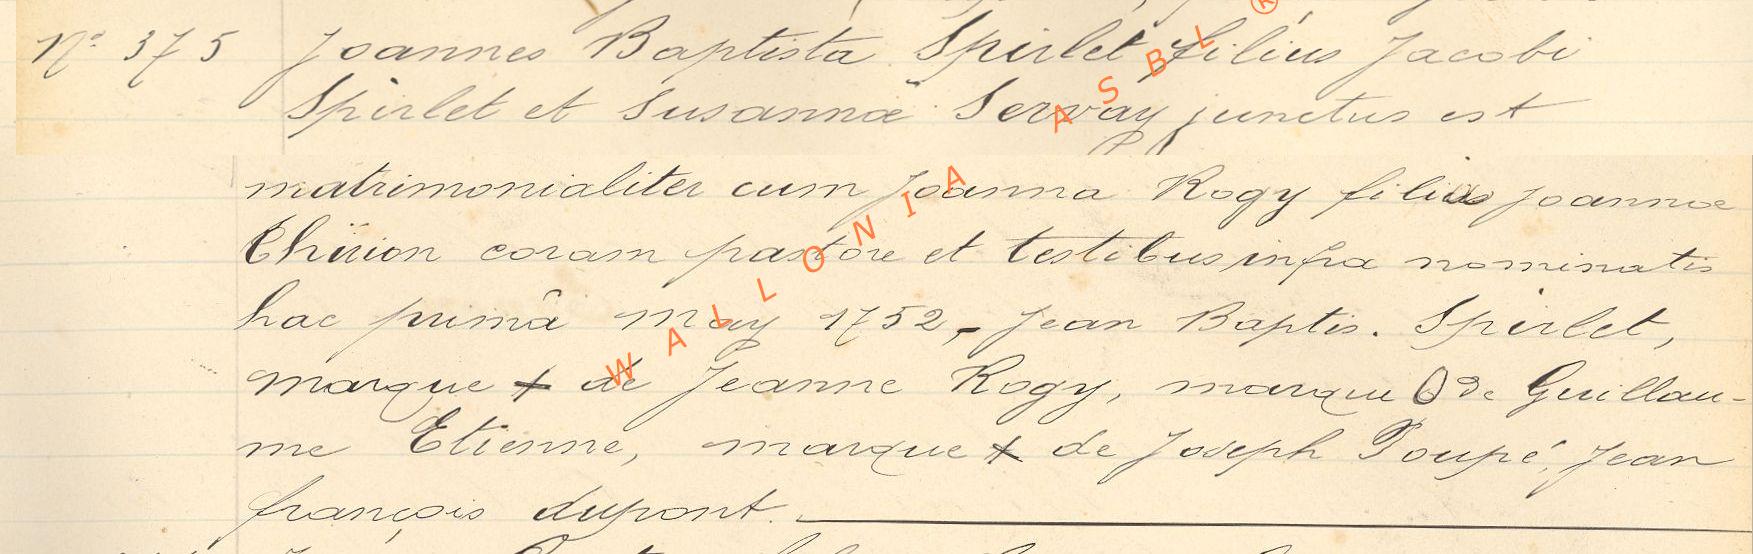 N° 375 Joannes Baptista Spirlet filius Jacobi
Spirlet et Susannæ Servay junctus est
matrimonialiter cum Joanna Rogy filia Joannæ
Thirion coram pastore et testibus infra nominatis
hac primâ May 1752, - Jean Baptis. Spirlet,
marque + de Jeanne Rogy, marque O de Guillau-
me Etienne, marque + de Joseph Poupé, Jean
françois dupont.
WALLONIA ASBL ®